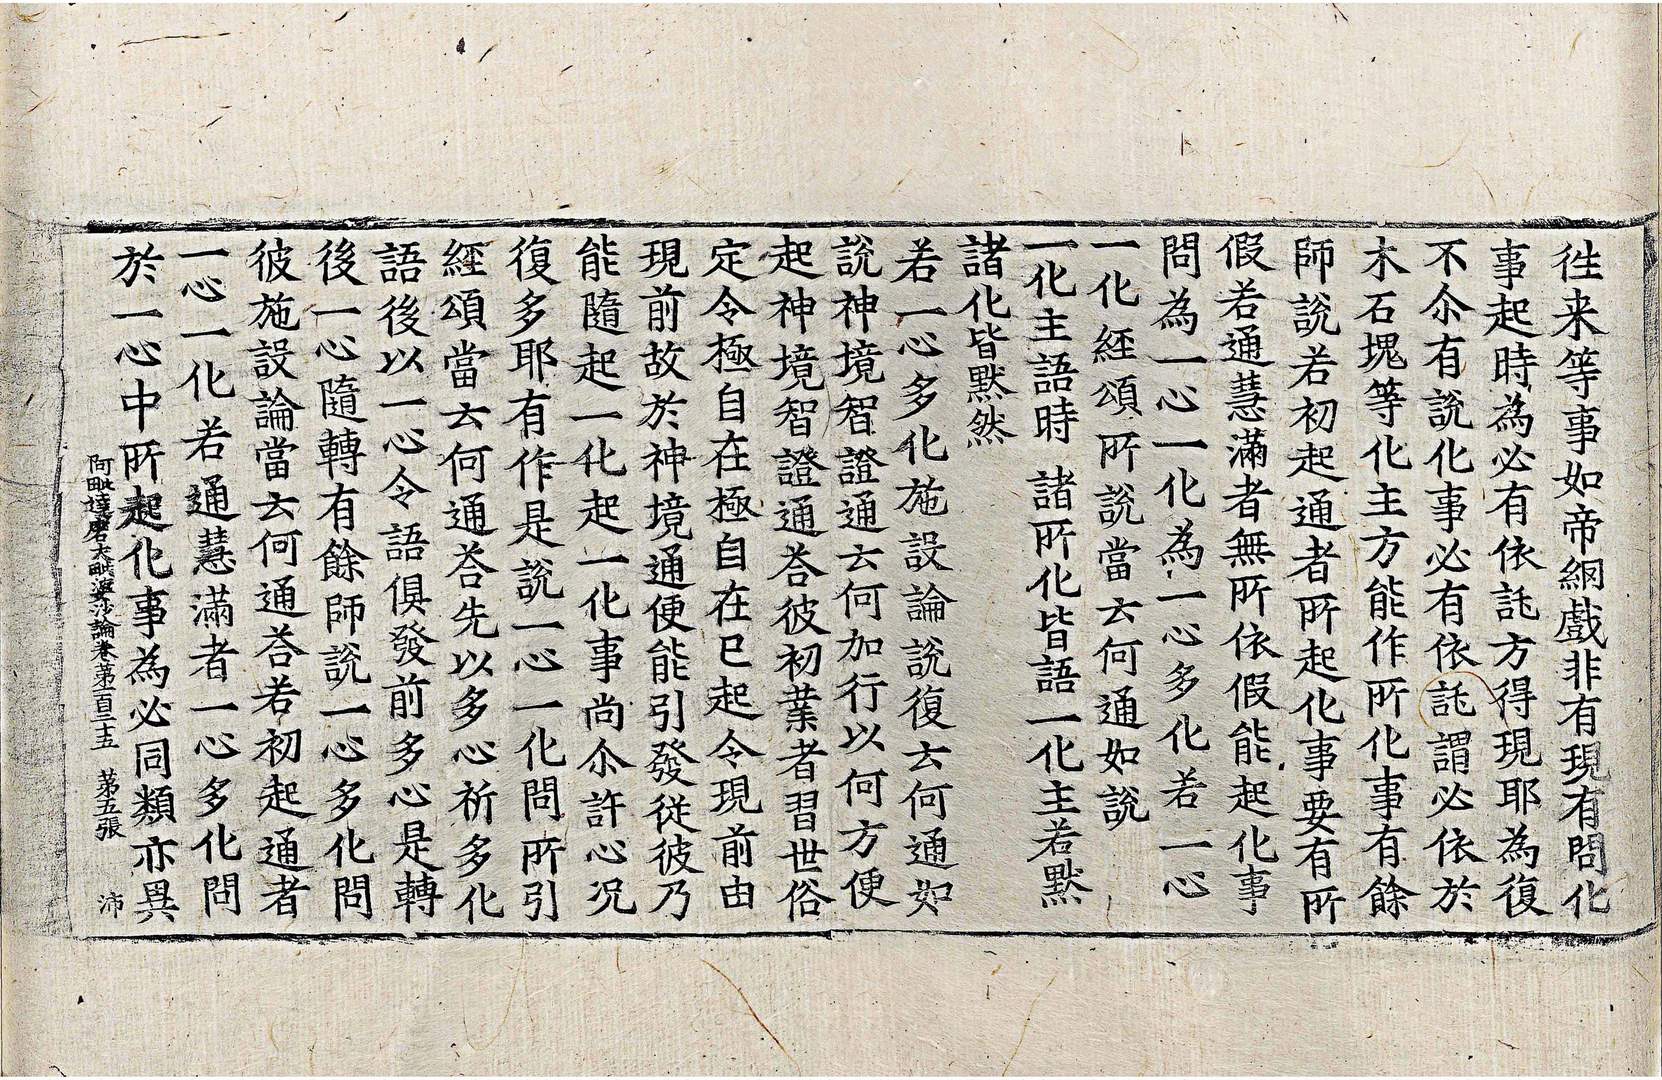 徃来等事如帝網戲非有現有問化
事起時為必有依託方得現耶為復
不尒有說化事必有依託謂必依於
木石塊等化主方能作所化事有餘
師說若初起通者所起化事要有所
假若通慧滿者無所依假能起化事
問為一心一化為一心多化若一心
一化經頌所說當云何通如說
一化主語時　諸所化皆語一化主若黙
諸化皆黙然
若一心多化施設論說復云何通如
說神境智證通云何加行以何方便
起神境智證通荅彼初業者習世俗
定令極自在極自在已起令現前由
現前故於神境通便能引發從彼乃
能隨起一化起一化事尚尒許心况
復多耶有作是說一心一化問所引
經頌當云何通荅先以多心祈多化
語後以一心令語俱發前多心是轉
後一心隨轉有餘師說一心多化問
彼施設論當云何通荅若初起通者
一心一化若通慧滿者一心多化問
於一心中所起化事為必同類亦異
阿毗達磨大毗婆沙論卷第一百三十五　第五張　沛